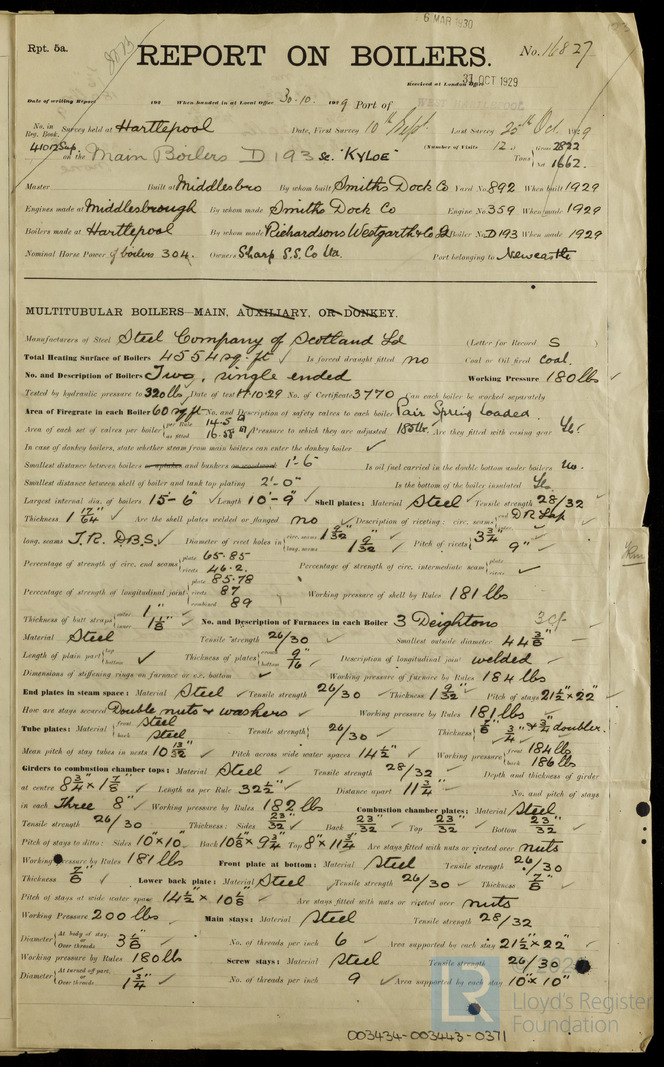 6 MAR 1930
Rpt. 5a.
REPORT ON BOILERS.
No. 16827
Received at London Office 31 OCT 1929
Date of writing Report 192 When handed in at Local Office 30.10. 1929 Port of
No. in Reg. Book. Survey held at Hartlepool Date, First Survey 10th Sept Last Survey 25th Oct. 1929
41012 Sup. on the Main Boilers D193 Sc. "KYLOE" (Number of Visits 12) Tons Gross 2822 Net 1662.
Master Built at Middlesbro By whom built Smiths Dock Co Yard No. 892 When built 1929
Engines made at Middlesbrough By whom made Smiths Dock Co Engine No. 359 When made 1929
Boilers made at Hartlepool By whom made Richardsons Westgarth & Co Ld Boiler No. D193 When made 1929
Nominal Horse Power of boilers 304. Owners Sharp S.S. Co Ltd. Port belonging to Newcastle
MULTITUBULAR BOILERS—MAIN, AUXILIARY, OR DONKEY.
Manufacturers of Steel Steel Company of Scotland Ld (Letter for Record S )
Total Heating Surface of Boilers 4554 sq. ft Is forced draught fitted no Coal or Oil fired coal.
No. and Description of Boilers Two, single ended Working Pressure 180 lbs
Tested by hydraulic pressure to 320 lbs Date of test 17.10.29 No. of Certificate 3770 Can each boiler be worked separately
Area of Firegrate in each Boiler 60 sq ft No. and Description of safety valves to each boiler Pair Spring Loaded
Area of each set of valves per boiler per Rule 14.5 as fitted 16.58 Pressure to which they are adjusted 185 lb. Are they fitted with easing gear Yes.
In case of donkey boilers, state whether steam from main boilers can enter the donkey boiler ✓
Smallest distance between boilers or uptakes and bunkers or woodwork 1'-6" Is oil fuel carried in the double bottom under boilers No.
Smallest distance between shell of boiler and tank top plating 2'-0" Is the bottom of the boiler insulated Yes
Largest internal dia. of boilers 15'-6" Length 10'-9" Shell plates: Material Steel Tensile strength 28/32
Thickness 1 17/64" Are the shell plates welded or flanged no Description of riveting: circ. seams end D R Lap
long. seams T.R. D.B.S. Diameter of rivet holes in circ. seams 1 9/32" long. seams 1 9/32" Pitch of rivets 3 3/4" 9"
Percentage of strength of circ. end seams plate 65.85 rivets 46.2. Percentage of strength of circ. intermediate seam plate rivets
Percentage of strength of longitudinal joint plate 85.78 rivets 87 combined 89 Working pressure of shell by Rules 181 lbs
Thickness of butt straps outer 1" inner 1 1/8" No. and Description of Furnaces in each Boiler 3 Deightons
Material Steel Tensile strength 26/30 Smallest outside diameter 44 3/8"
Length of plain part top bottom ✓ Thickness of plates crown bottom 9/16" Description of longitudinal joint welded
Dimensions of stiffening rings on furnace or c.c. bottom ✓ Working pressure of furnace by Rules 184 lbs
End plates in steam space: Material Steel Tensile strength 26/30 Thickness 1 9/32" Pitch of stays 21 1/2" × 22"
How are stays secured Double nuts & washers Working pressure by Rules 181 lbs
Tube plates: Material front Steel back Steel Tensile strength 26/30 Thickness 7/8" 3/4" & 3/4" doubler.
Mean pitch of stay tubes in nests 10 13/32" Pitch across wide water spaces 14 1/2" Working pressure front 184 lbs back 186 lbs
Girders to combustion chamber tops: Material Steel Tensile strength 28/32 Depth and thickness of girder
at centre 8 3/4" × 1 7/8" Length as per Rule 32 1/2" Distance apart 11 3/4" No. and pitch of stays
in each Three 8" Working pressure by Rules 182 lbs Combustion chamber plates: Material Steel
Tensile strength 26/30 Thickness: Sides 23/32" Back 23/32" Top 23/32" Bottom 23/32"
Pitch of stays to ditto: Sides 10" × 10" Back 10 1/8" × 9 3/4" Top 8" × 11 3/4" Are stays fitted with nuts or riveted over nuts
Working pressure by Rules 181 lbs Front plate at bottom: Material Steel Tensile strength 26/30
Thickness 7/8" Lower back plate: Material Steel Tensile strength 26/30 Thickness 7/8"
Pitch of stays at wide water space 14 1/2" × 10 1/8" Are stays fitted with nuts or riveted over nuts
Working Pressure 200 lbs Main stays: Material Steel Tensile strength 28/32
Diameter At body of stay, or Over threads 3 1/8" No. of threads per inch 6 Area supported by each stay 21 1/2" × 22"
Working pressure by Rules 180 lbs Screw stays: Material Steel Tensile strength 26/30
Diameter At turned off part, or Over threads 1 3/4" No. of threads per inch 9 Area supported by each stay 10" × 10"
LR
Lloyd's Register
Foundation
003434-003443-0371